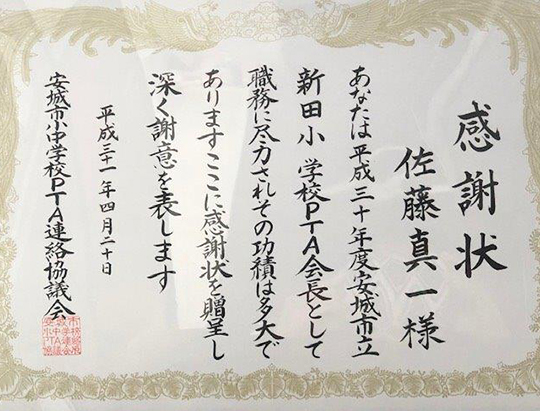 感謝状
佐藤真一様
あなたは平成三十年度安城市立
新田小学校PTA会長として
職務に尽力されその功績は多大で
ありますここに感謝状を贈呈し
深く謝意を表します
平成三十一年四月二十日
安城市小中学校PTA連絡協議会